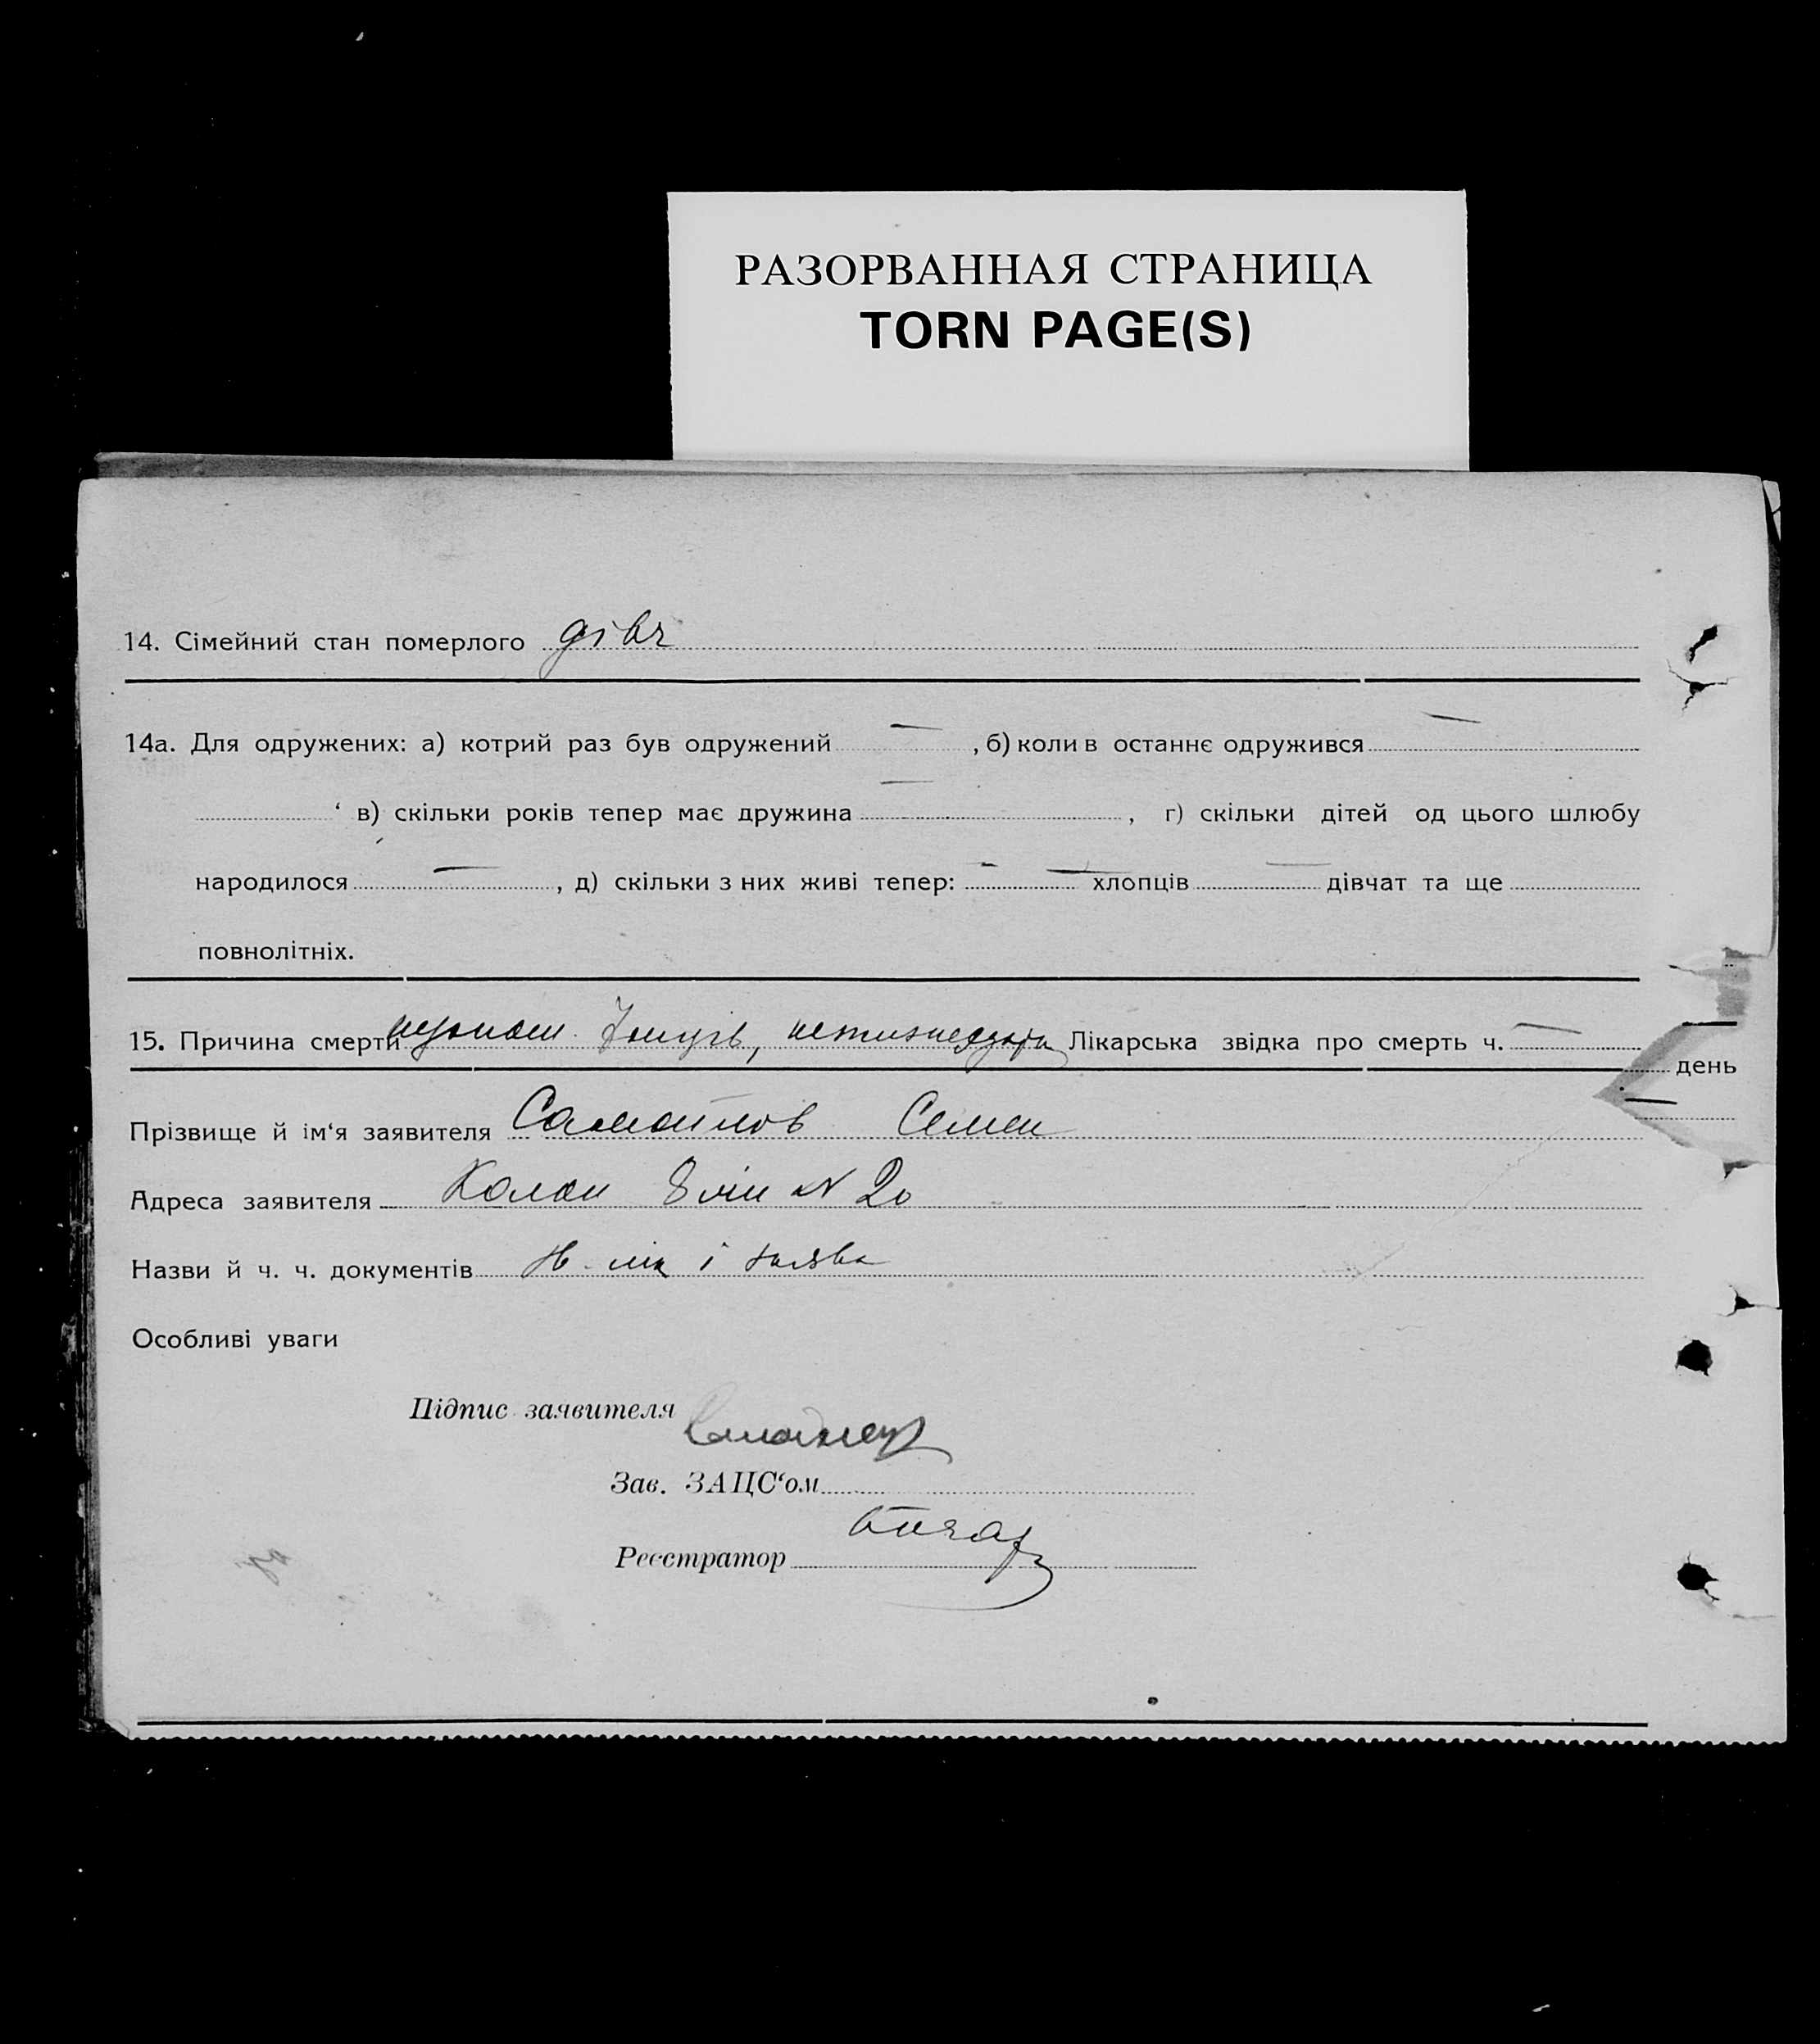 РАЗОРВАННАЯ СТРАНИЦА
TORN PAGE(S)
14. Сімейний стан померлого
14а. Для одружених: а) котрий раз був одружений — , б) коли в останнє одружився —
в) скільки років тепер має дружина — , г) скільки дітей од цього шлюбу
народилося — , д) скільки з них живі тепер: — хлопців — дівчат та ще
повнолітніх.
15. Причина смерти Лікарська звідка про смерть ч. —
день
Прізвище й ім‘я заявителя Самойлов Семен
Адреса заявителя 8 № 20
Назви й ч. ч. документів і заява
Особливі уваги
Підпис заявителя
Зав. ЗАЦС‘ом
Реєстратор